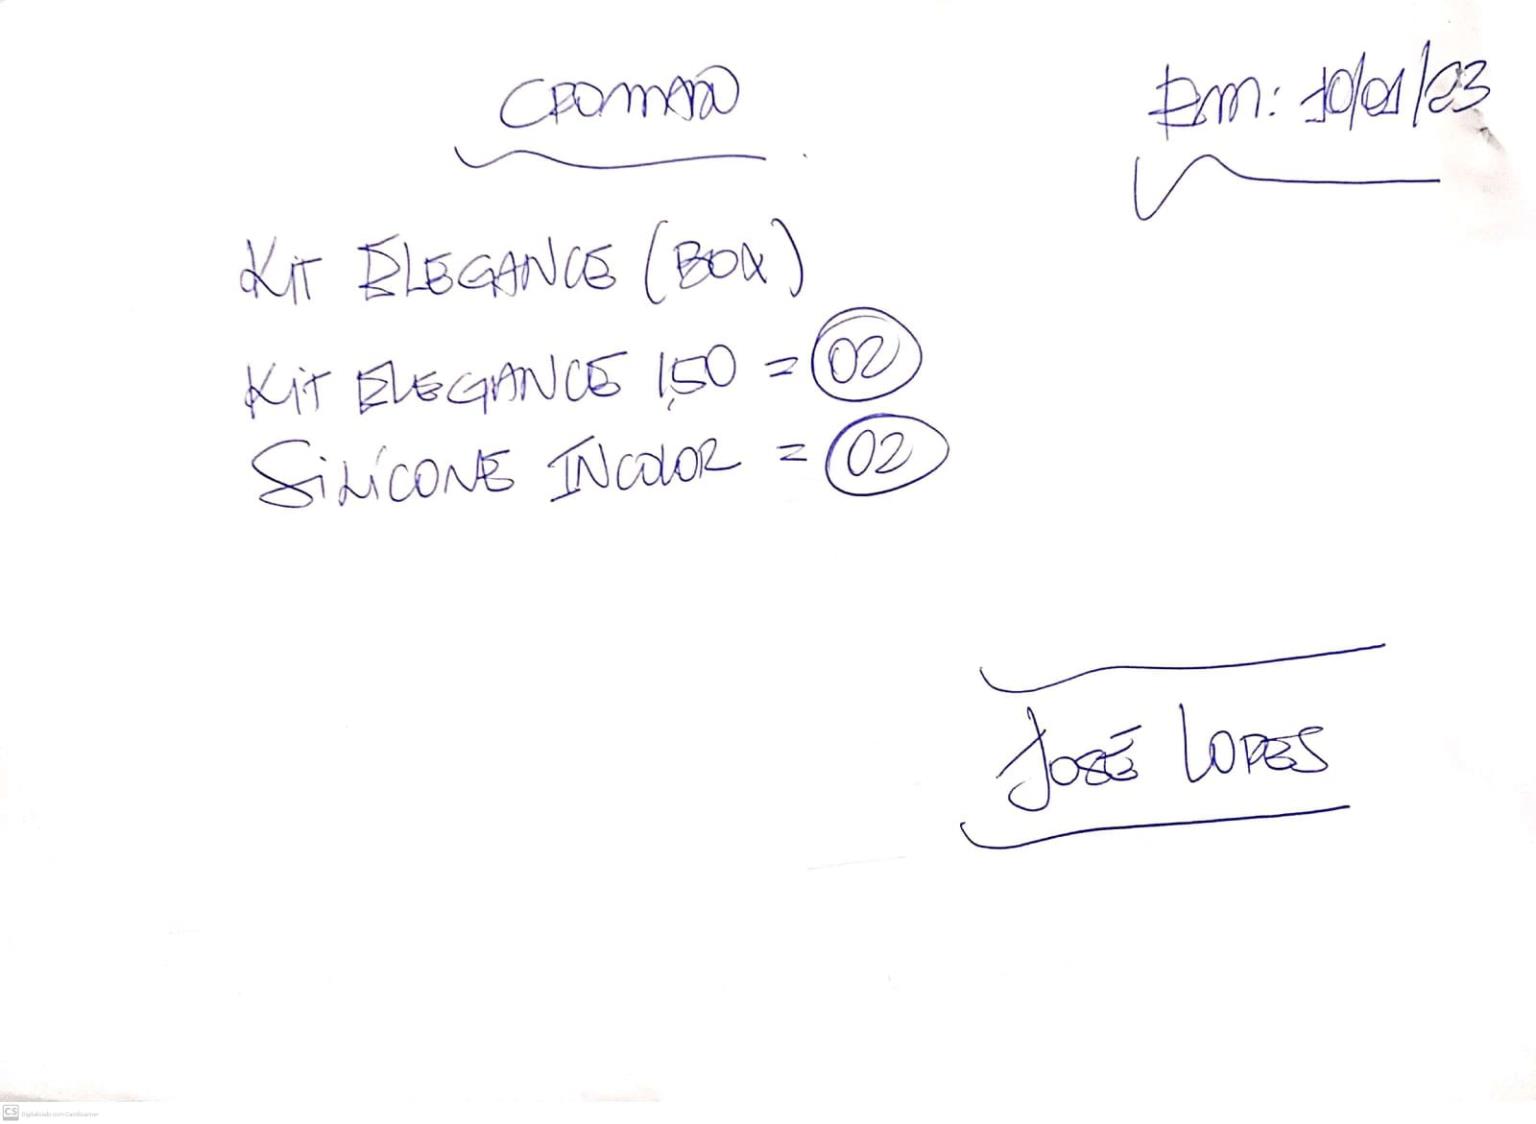 CROMADO
Em: 10/01/23
KIT ELEGANCE (BOX)
KIT ELEGANCE 1,50 = 02
SILÍCONE INCOLOR = 02
JOSÉ LOPES
CS Digitalizado com CamScanner